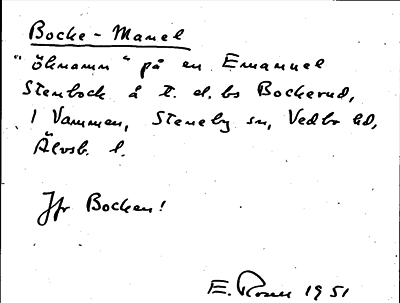 Bocke-Manel
"öknamn" på en Emanuel
Stenbock å t. d. bs Bockerud,
1 Vammen, Steneby sn, Vedbo hd,
Älvsb. l.
Jfr Bocken!
E. Rosell 1951